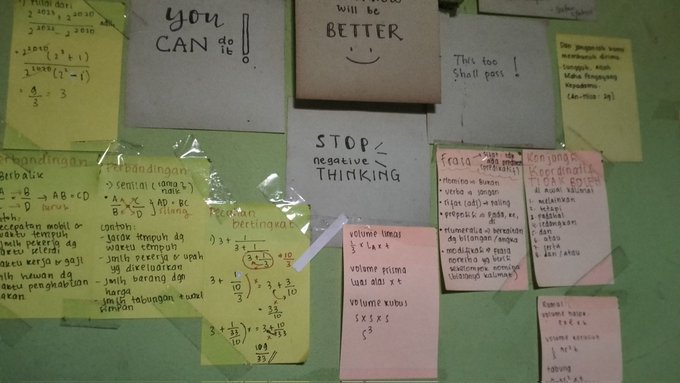 ) Nilai dari
2²⁰²³ + 2²⁰²⁰
2²⁰²³ - 2²⁰²⁰
2²⁰²⁰(2³ + 1)
2²⁰²⁰(2³ - 1)
= 9
you
CAN do it !
will be
BETTER
This too
shall pass !
Dan janganlah kamu
membunuh dirimu
sungguh, Allah
Maha Penyayang
Kepadamu
(An-Nisa: 29)
STOP
negative
THINKING
erbandingan
Berbalik
A → B
→ AB = CD
lurus
toh:
kecepatan mobil &
waktu tempuh
jmlh pekerja dg
waktu selesai
waktu kerja & gaji
jmlh hewan dg
waktu penghabisan
makan
Perbandingan
→ senilai (sama" naik)
AD = BC
silang
contoh:
- jarak tempuh dg
waktu tempuh
- jmlh pekerja & upah
yg dikeluarkan
- jmlh barang dgn
harga
- jmlh tabungan + wakt
simpan
Pecahan
bertingkat
3 + 1
3 + 1
3 + 1
3
10
3
3 + (1
10
3) = 3 + 3
10
= 33
10
3 + (1
33
10) = 3 + 10
33
109
33
volume limas
1/3 x La x t
volume prisma
luas alas x t
volume kubus
s x s x s
s³
Frasa
• Nomina → bukan
• verba → jangan
• sifat (adj) → paling
• preposisi → pada, ke, di
• Numeralia → berkaitan
dg bilangan/angka
• modifikatif → frasa
nomina yg berisi
sekelompok nomina
(biasanya kalimat)
Konjungsi
Koordinatif
TIDAK BOLEH
di awal kalimat
1. melainkan
2. tetapi
3. padahal
4. sedangkan
5. dan
6. atau
7. serta
8. dan/atau
volume balok
volume kerucut
1/3 πr² t
tabung